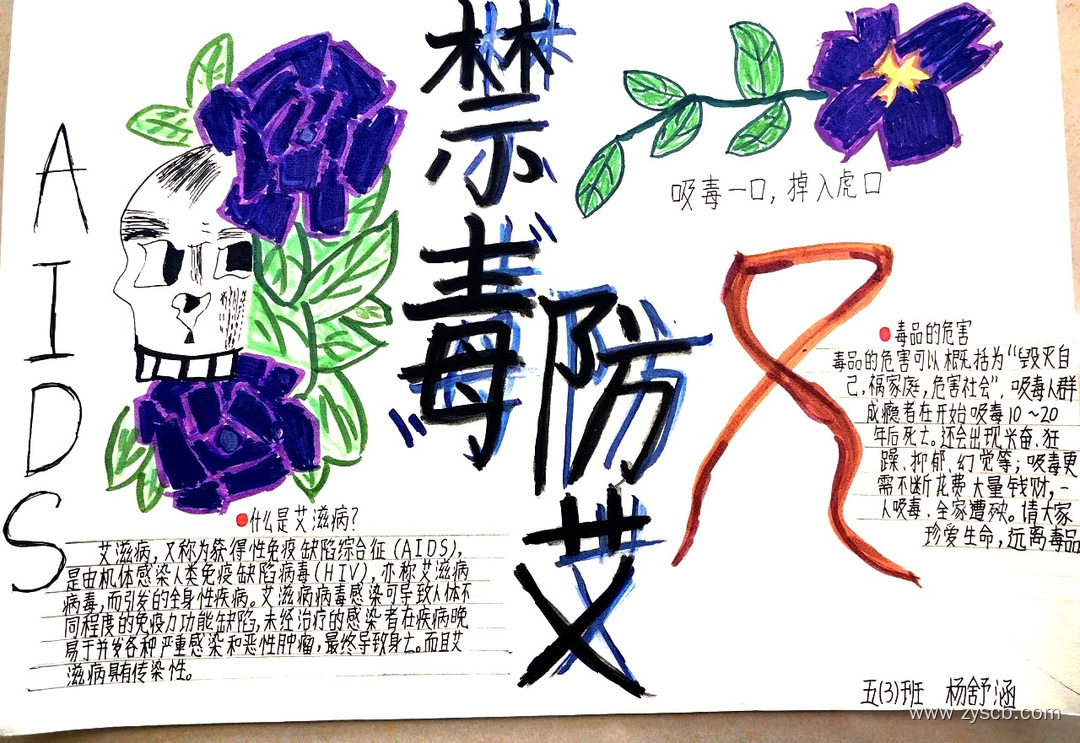 AIDS
禁毒
防艾
吸毒一口，掉入虎口
毒品的危害
毒品的危害可以概括为“毁灭自
己，祸家庭，危害社会”，吸毒人群
成瘾者在开始吸毒10～20
年后死亡。还会出现兴奋、狂
躁、抑郁、幻觉等；吸毒更
需不断花费大量钱财，一
人吸毒、全家遭殃。请大家
珍爱生命，远离毒品
什么是艾滋病？
艾滋病，又称为获得性免疫缺陷综合征（AIDS），
是由机体感染人类免疫缺陷病毒（HIV），亦称艾滋病
病毒，而引发的全身性疾病。艾滋病病毒感染可导致人体不
同程度的免疫力功能缺陷，未经治疗的感染者在疾病晚
易于并发各种严重感染和恶性肿瘤，最终导致身亡。而且艾
滋病具有传染性。
五(3)班 杨舒涵
www.zyscb.com